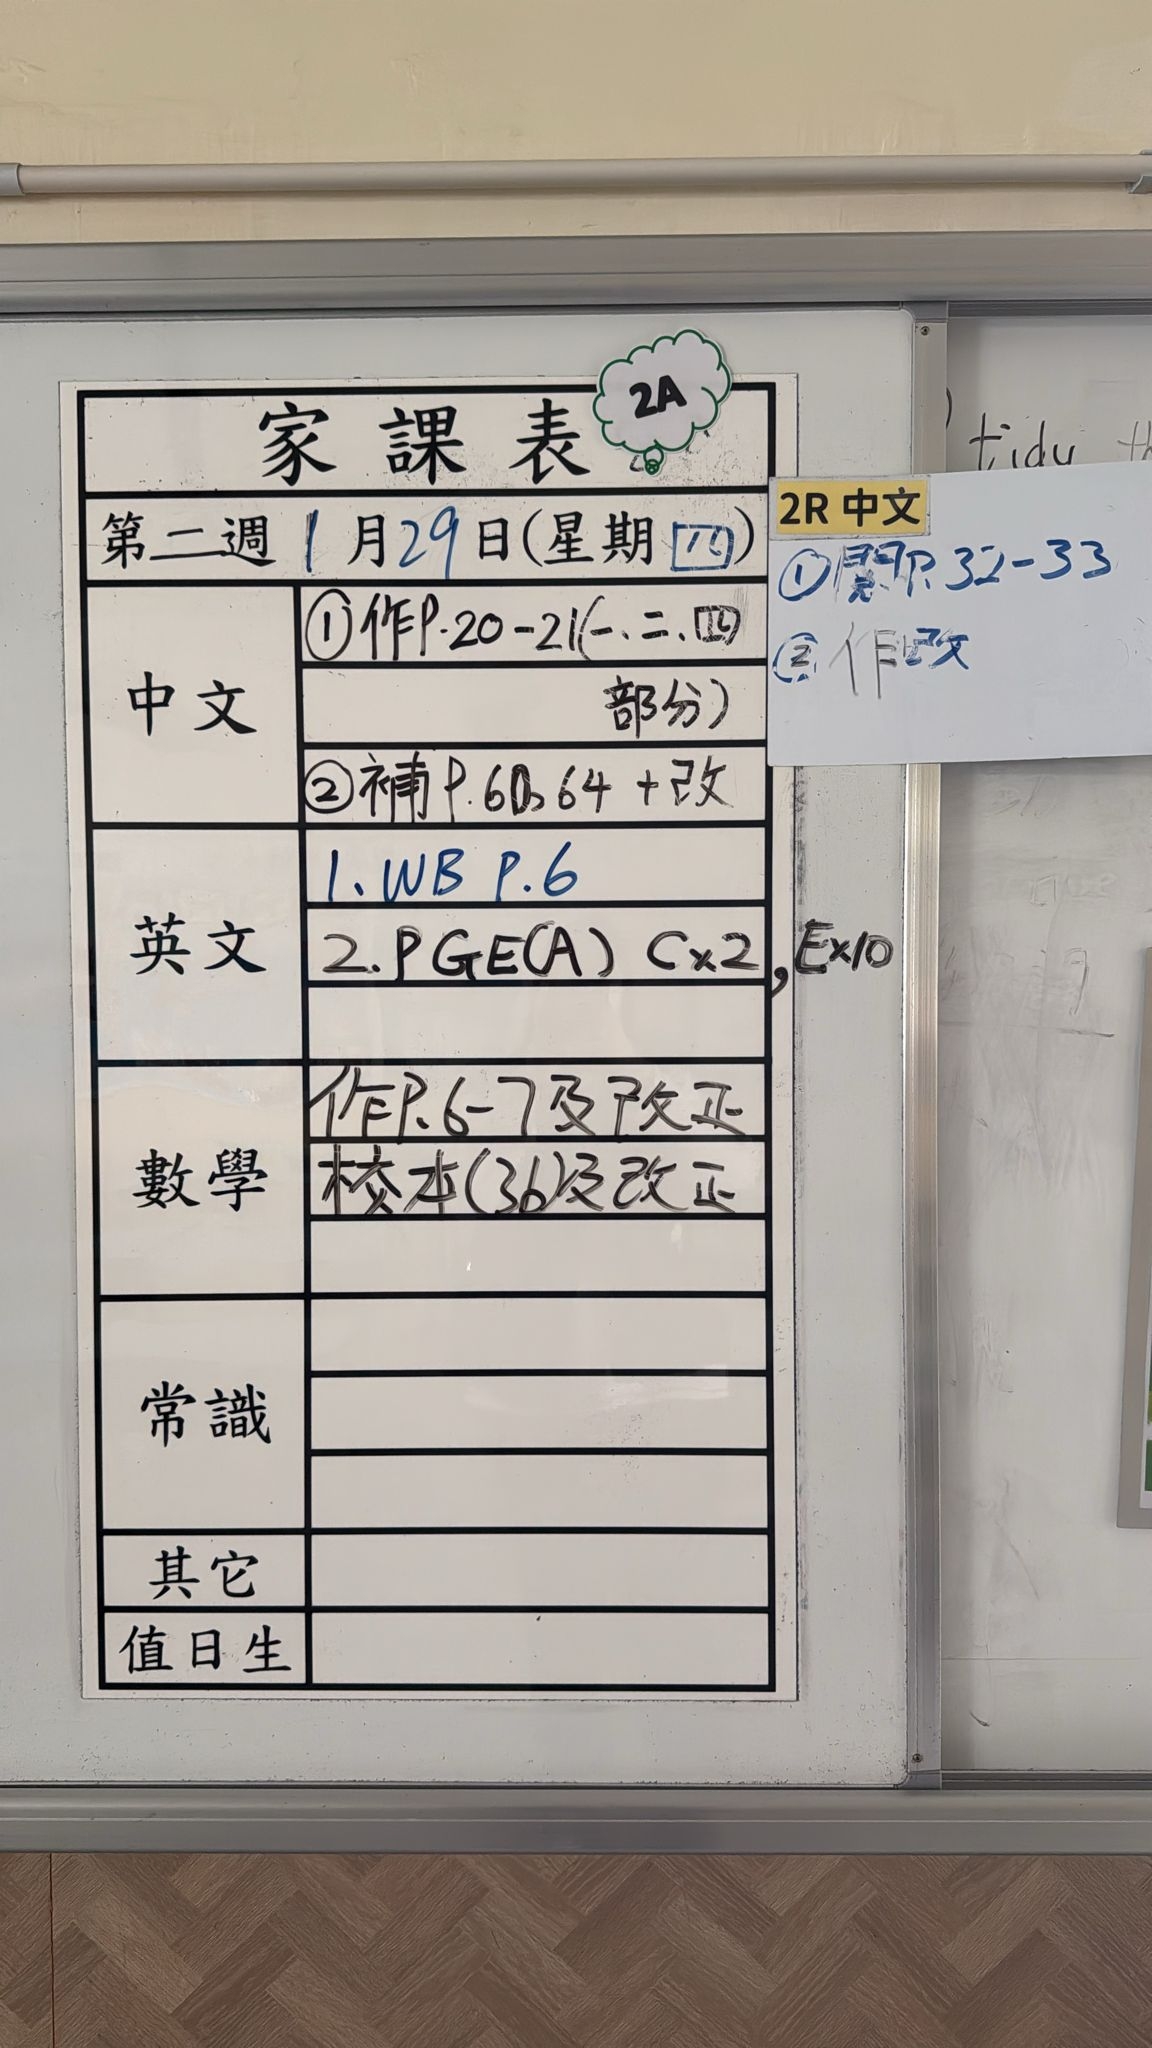 2A
家課表
第二週 1月29日(星期四)
中文
①作P.20-21(一、二、四
部分)
②補P.60、64 + 改
英文
1. WB P.6
2. PGE(A) C×2, E×10
數學
作P.6-7及改正
校本(36)及改正
常識
其它
值日生
tidy
2R 中文
①閱P.32-33
②作改